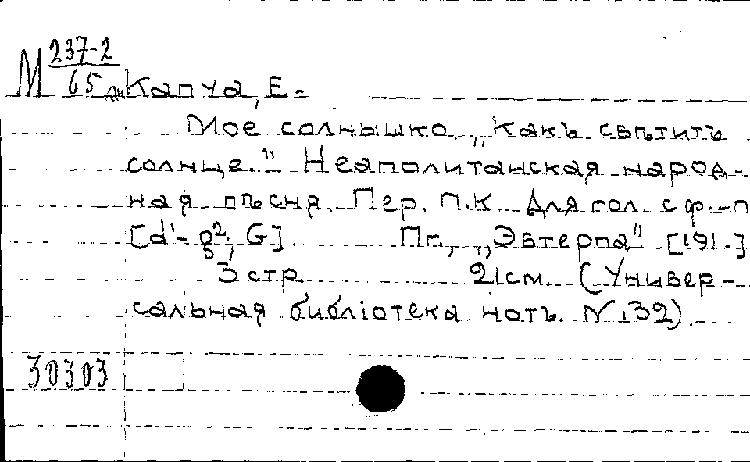 М 237-2
65 Капуа, Е.
Мое солнышко. „Какъ свѣтитъ
солнце." Неаполитанская народ-
ная пѣсня. Пер. П.К. Для гол. с ф.-п
[d'-g², G] Пг., „Эвтерпа" [191.]
3 стр. 21см. (Универ-
сальная библіотека нотъ. N 132)
30303